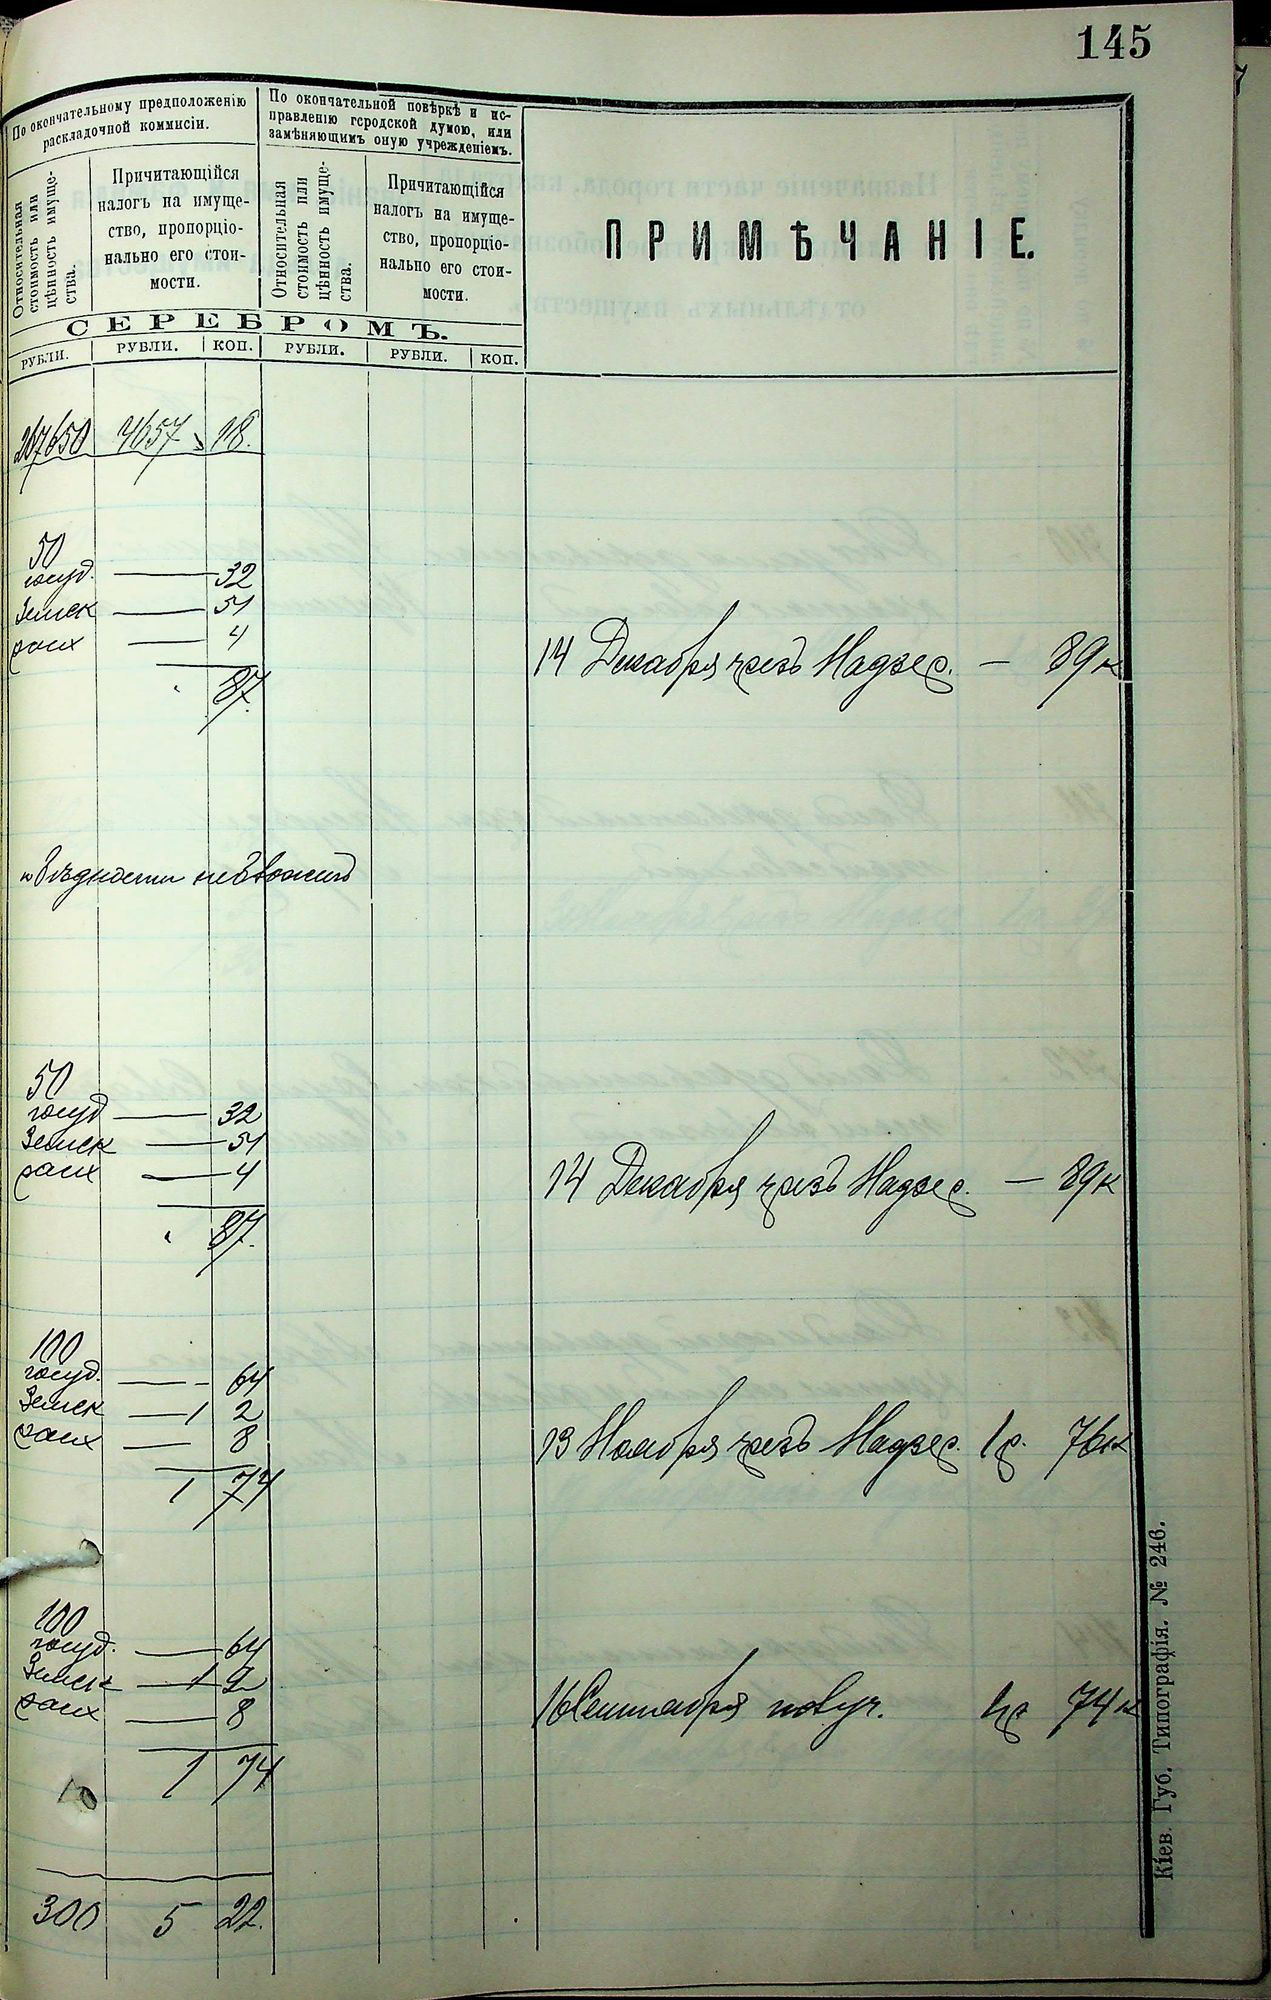 145
По окончательному предположенію
раскладочной коммисіи.
По окончательной повѣркѣ и ис-
правленію городской думою, или
замѣняющимъ оную учрежденіемъ.
Относительная
стоимость или
цѣнность имуще-
ства.
Причитающійся
налогъ на имуще-
ство, пропорціо-
нально его стои-
мости.
Относительная
стоимость или
цѣнность имуще-
ства.
Причитающійся
налогъ на имуще-
ство, пропорціо-
нально его стои-
мости.
ПРИМѢЧАНІЕ.
СЕРЕБРОМЪ.
РУБЛИ. РУБЛИ. КОП. РУБЛИ. РУБЛИ. КОП.
267650 4657 18.
50
госуд. — 32
Земск — 51
4
87.
14 Декабря чрезъ Надзер. — 89 к
бѣдности
50
госуд — 32
Земск — 51
— 4
87.
14 Декабря чрезъ Надзер. — 89 к
100
госуд. — 64
Земск — 1 2
— 8
1 74
13 Ноября чрезъ Надзер. 1 р. 76 к
100
госуд. — 64
Земск — 1 2
— 8
1 74
16 Сентября 1 р 74 к
300 5 22.
Кіев. Губ. Типографія. № 246.